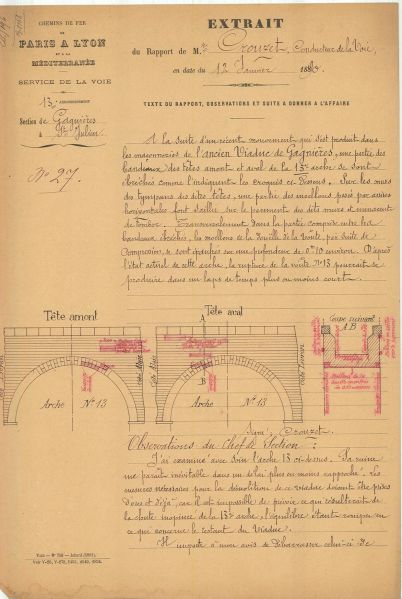 CHEMINS DE FER
DE
PARIS A LYON
ET A LA
MÉDITERRANÉE
SERVICE DE LA VOIE
13e ARRONDISSEMENT
Section de Gagnières
à St Julien
No 27
EXTRAIT
du Rapport de M. Crouzet, Conducteur de la Voie,
en date du 12 Janvier 1889.
TEXTE DU RAPPORT, OBSERVATIONS ET SUITE A DONNER A L'AFFAIRE
A la suite d'un récent mouvement qui s'est produit dans
les maçonneries de l'ancien Viaduc de Gagnières, une partie des
bandeaux des têtes amont et aval de la 13e arche se sont
ébréchés comme l'indiquent les croquis ci-dessous. Sur les murs
des tympans des dites têtes, une partie des moellons posés par assises
horizontales font saillie sur le parement des dits murs et menacent
de tomber. Transversalement dans la partie comprise entre les
bandeaux ébréchés, les moellons de la douelle de la voûte, par suite de
compression, se sont épaufrés sur une profondeur de 0m10 environ. D'après
l'état actuel de cette arche, la rupture de la voûte No 13 pourrait se
produire dans un laps de temps plus ou moins court.
Tête amont
Tête aval
Coupe suivant
AB
A
B
Arche No 13
Arche No 13
Signé, Crouzet.
Observations du Chef de Section :
J'ai examiné avec soin l'arche 13 ci-dessus. Sa ruine
me paraît inévitable dans un délai plus ou moins rapproché. Les
mesures nécessaires pour la démolition de ce viaduc doivent être prises
d'ores et déjà, car il est impossible de prévoir ce qui résulterait de
la chute inopinée de la 13e arche, l'équilibre étant rompu en
ce qui concerne le restant du Viaduc.
Il importe à mon avis de débarrasser celui-ci de